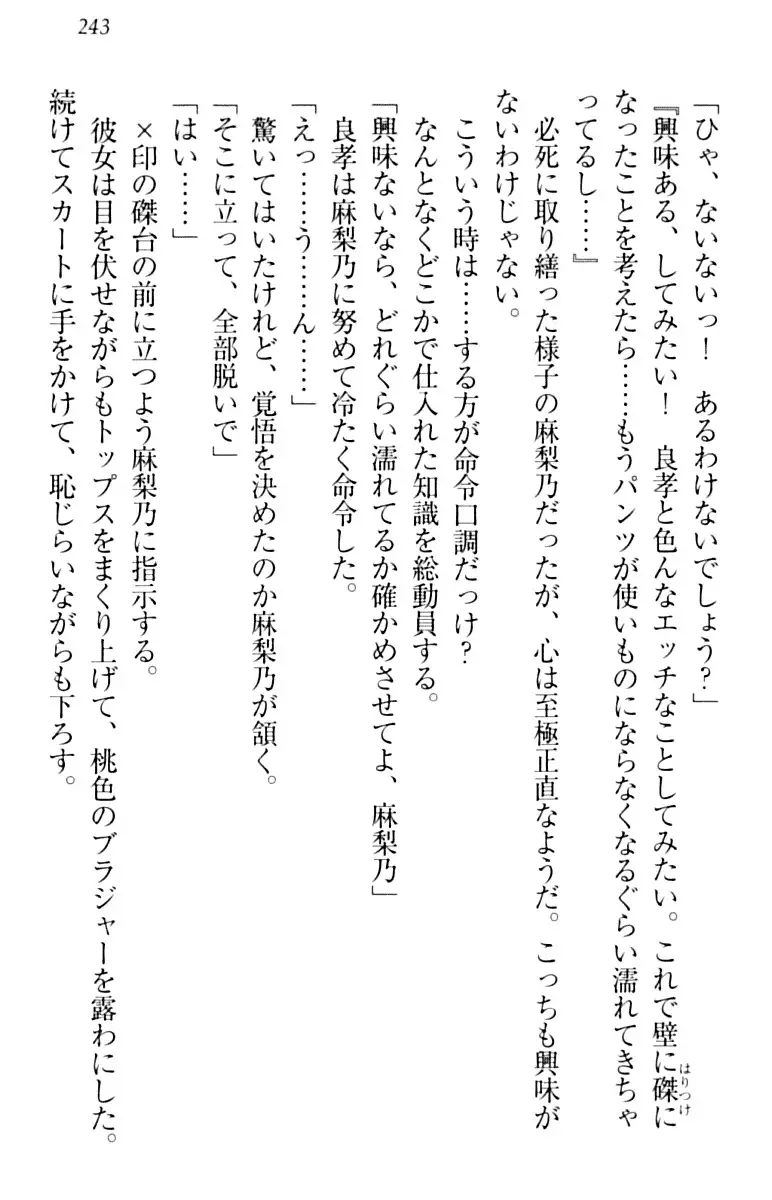 243
「ひゃ、ないないっ！　あるわけないでしょう？」
『興味ある、してみたい！　良孝と色んなエッチなことしてみたい。これで壁に磔に
はりつけ
なったことを考えたら……もうパンツが使いものにならなくなるぐらい濡れてきちゃ
ってるし……』
必死に取り繕った様子の麻梨乃だったが、心は至極正直なようだ。こっちも興味が
ないわけじゃない。
こういう時は……する方が命令口調だっけ？
なんとなくどこかで仕入れた知識を総動員する。
「興味ないなら、どれぐらい濡れてるか確かめさせてよ、麻梨乃」
良孝は麻梨乃に努めて冷たく命令した。
「えっ……う……ん……」
驚いてはいたけれど、覚悟を決めたのか麻梨乃が頷く。
「そこに立って、全部脱いで」
「はい……」
×印の磔台の前に立つよう麻梨乃に指示する。
彼女は目を伏せながらもトップスをまくり上げて、桃色のブラジャーを露わにした。
続けてスカートに手をかけて、恥じらいながらも下ろす。